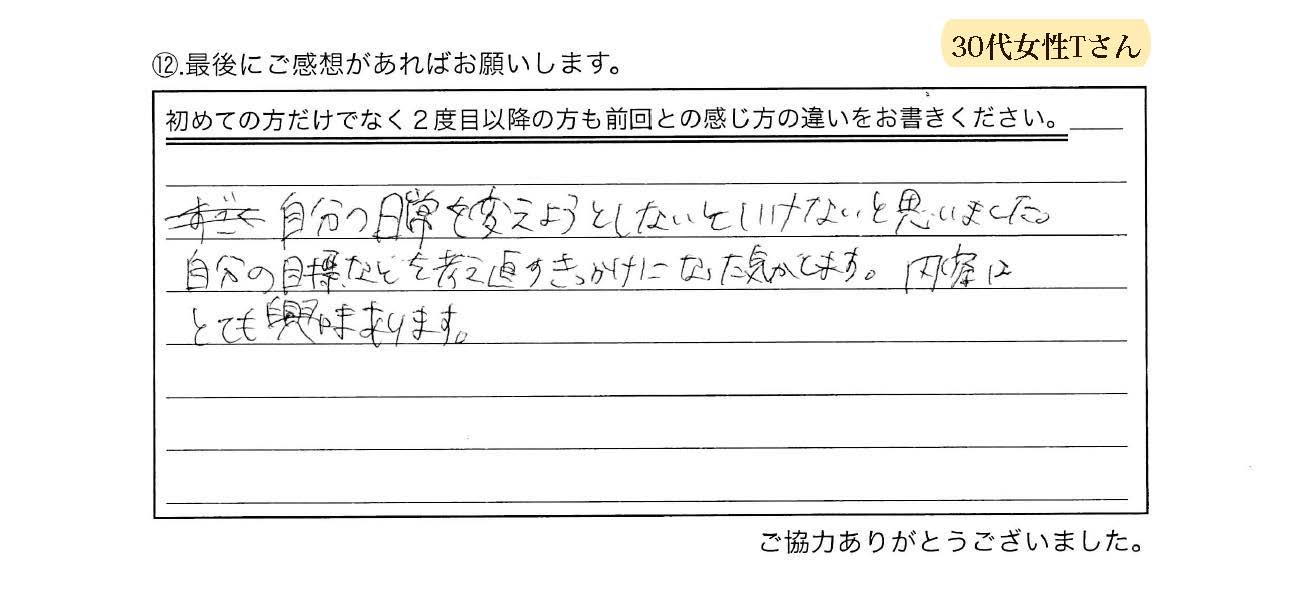 30代女性Tさん
⑫.最後にご感想があればお願いします。
初めての方だけでなく２度目以降の方も前回との感じ方の違いをお書きください。
自分の日常を変えようとしないといけないと思いました。
自分の目標などを考え直すきっかけになった気がします。内容は
とても興味あります。
ご協力ありがとうございました。